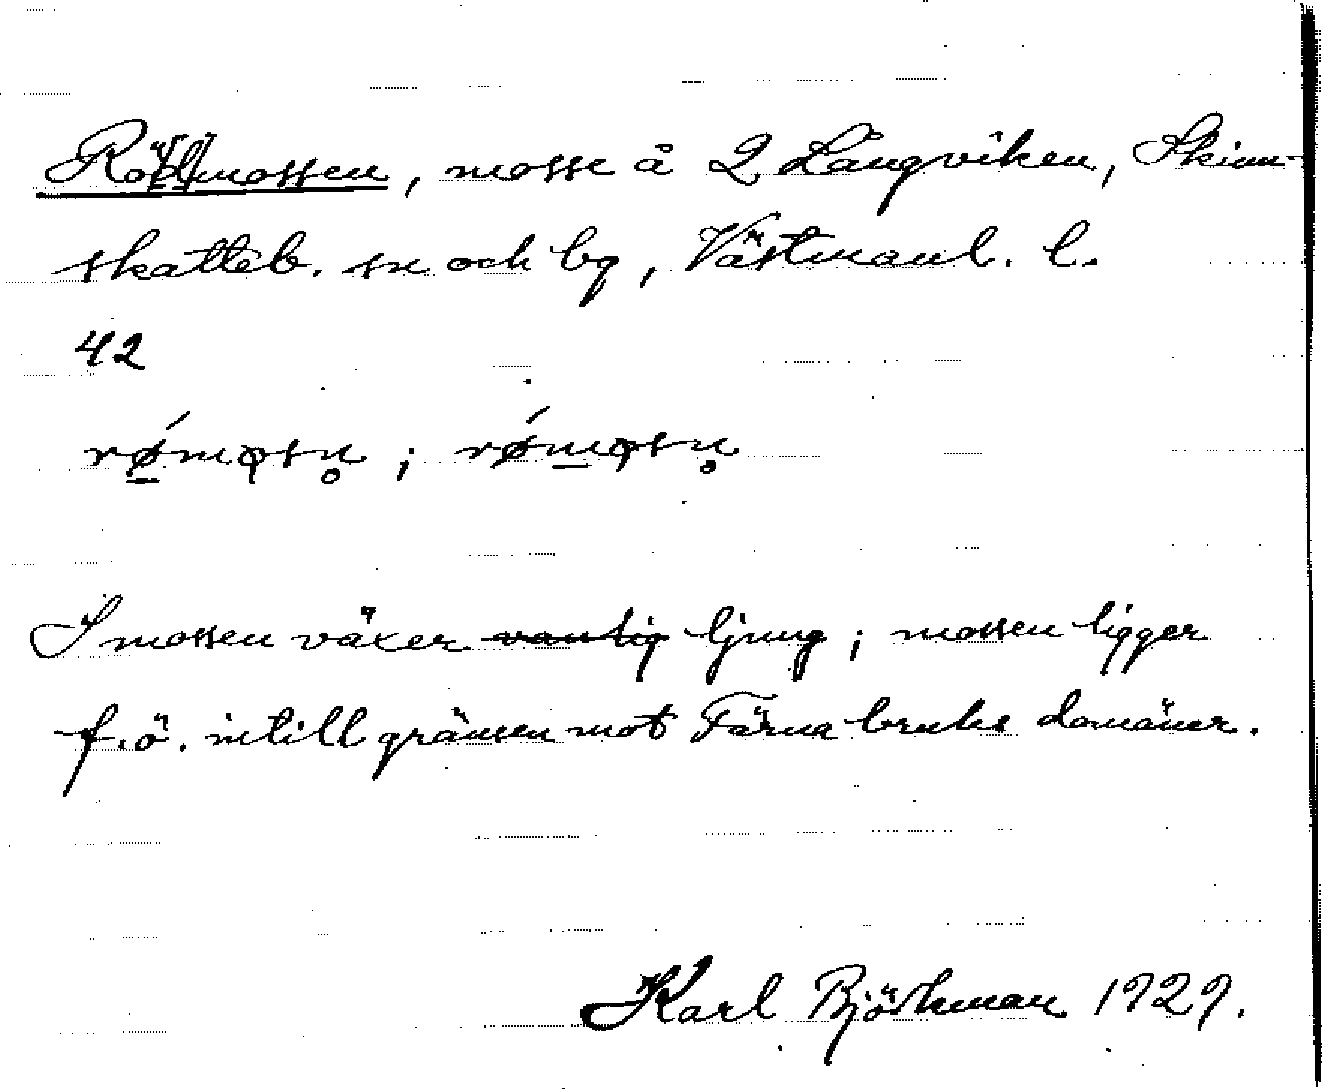 Rö[d]mossen, mosse å 2 Långviken, Skinn-
skatteb. sn och bg, Västmanl. l.
42
rǿ̲mǫsn̥ ; rǿm̲ǫsn̥
I mossen växer ~~vanlig~~ ljung ; mossen ligger
f. ö. intill gränsen mot Färna bruks domäner.
Karl Björkman 1929.